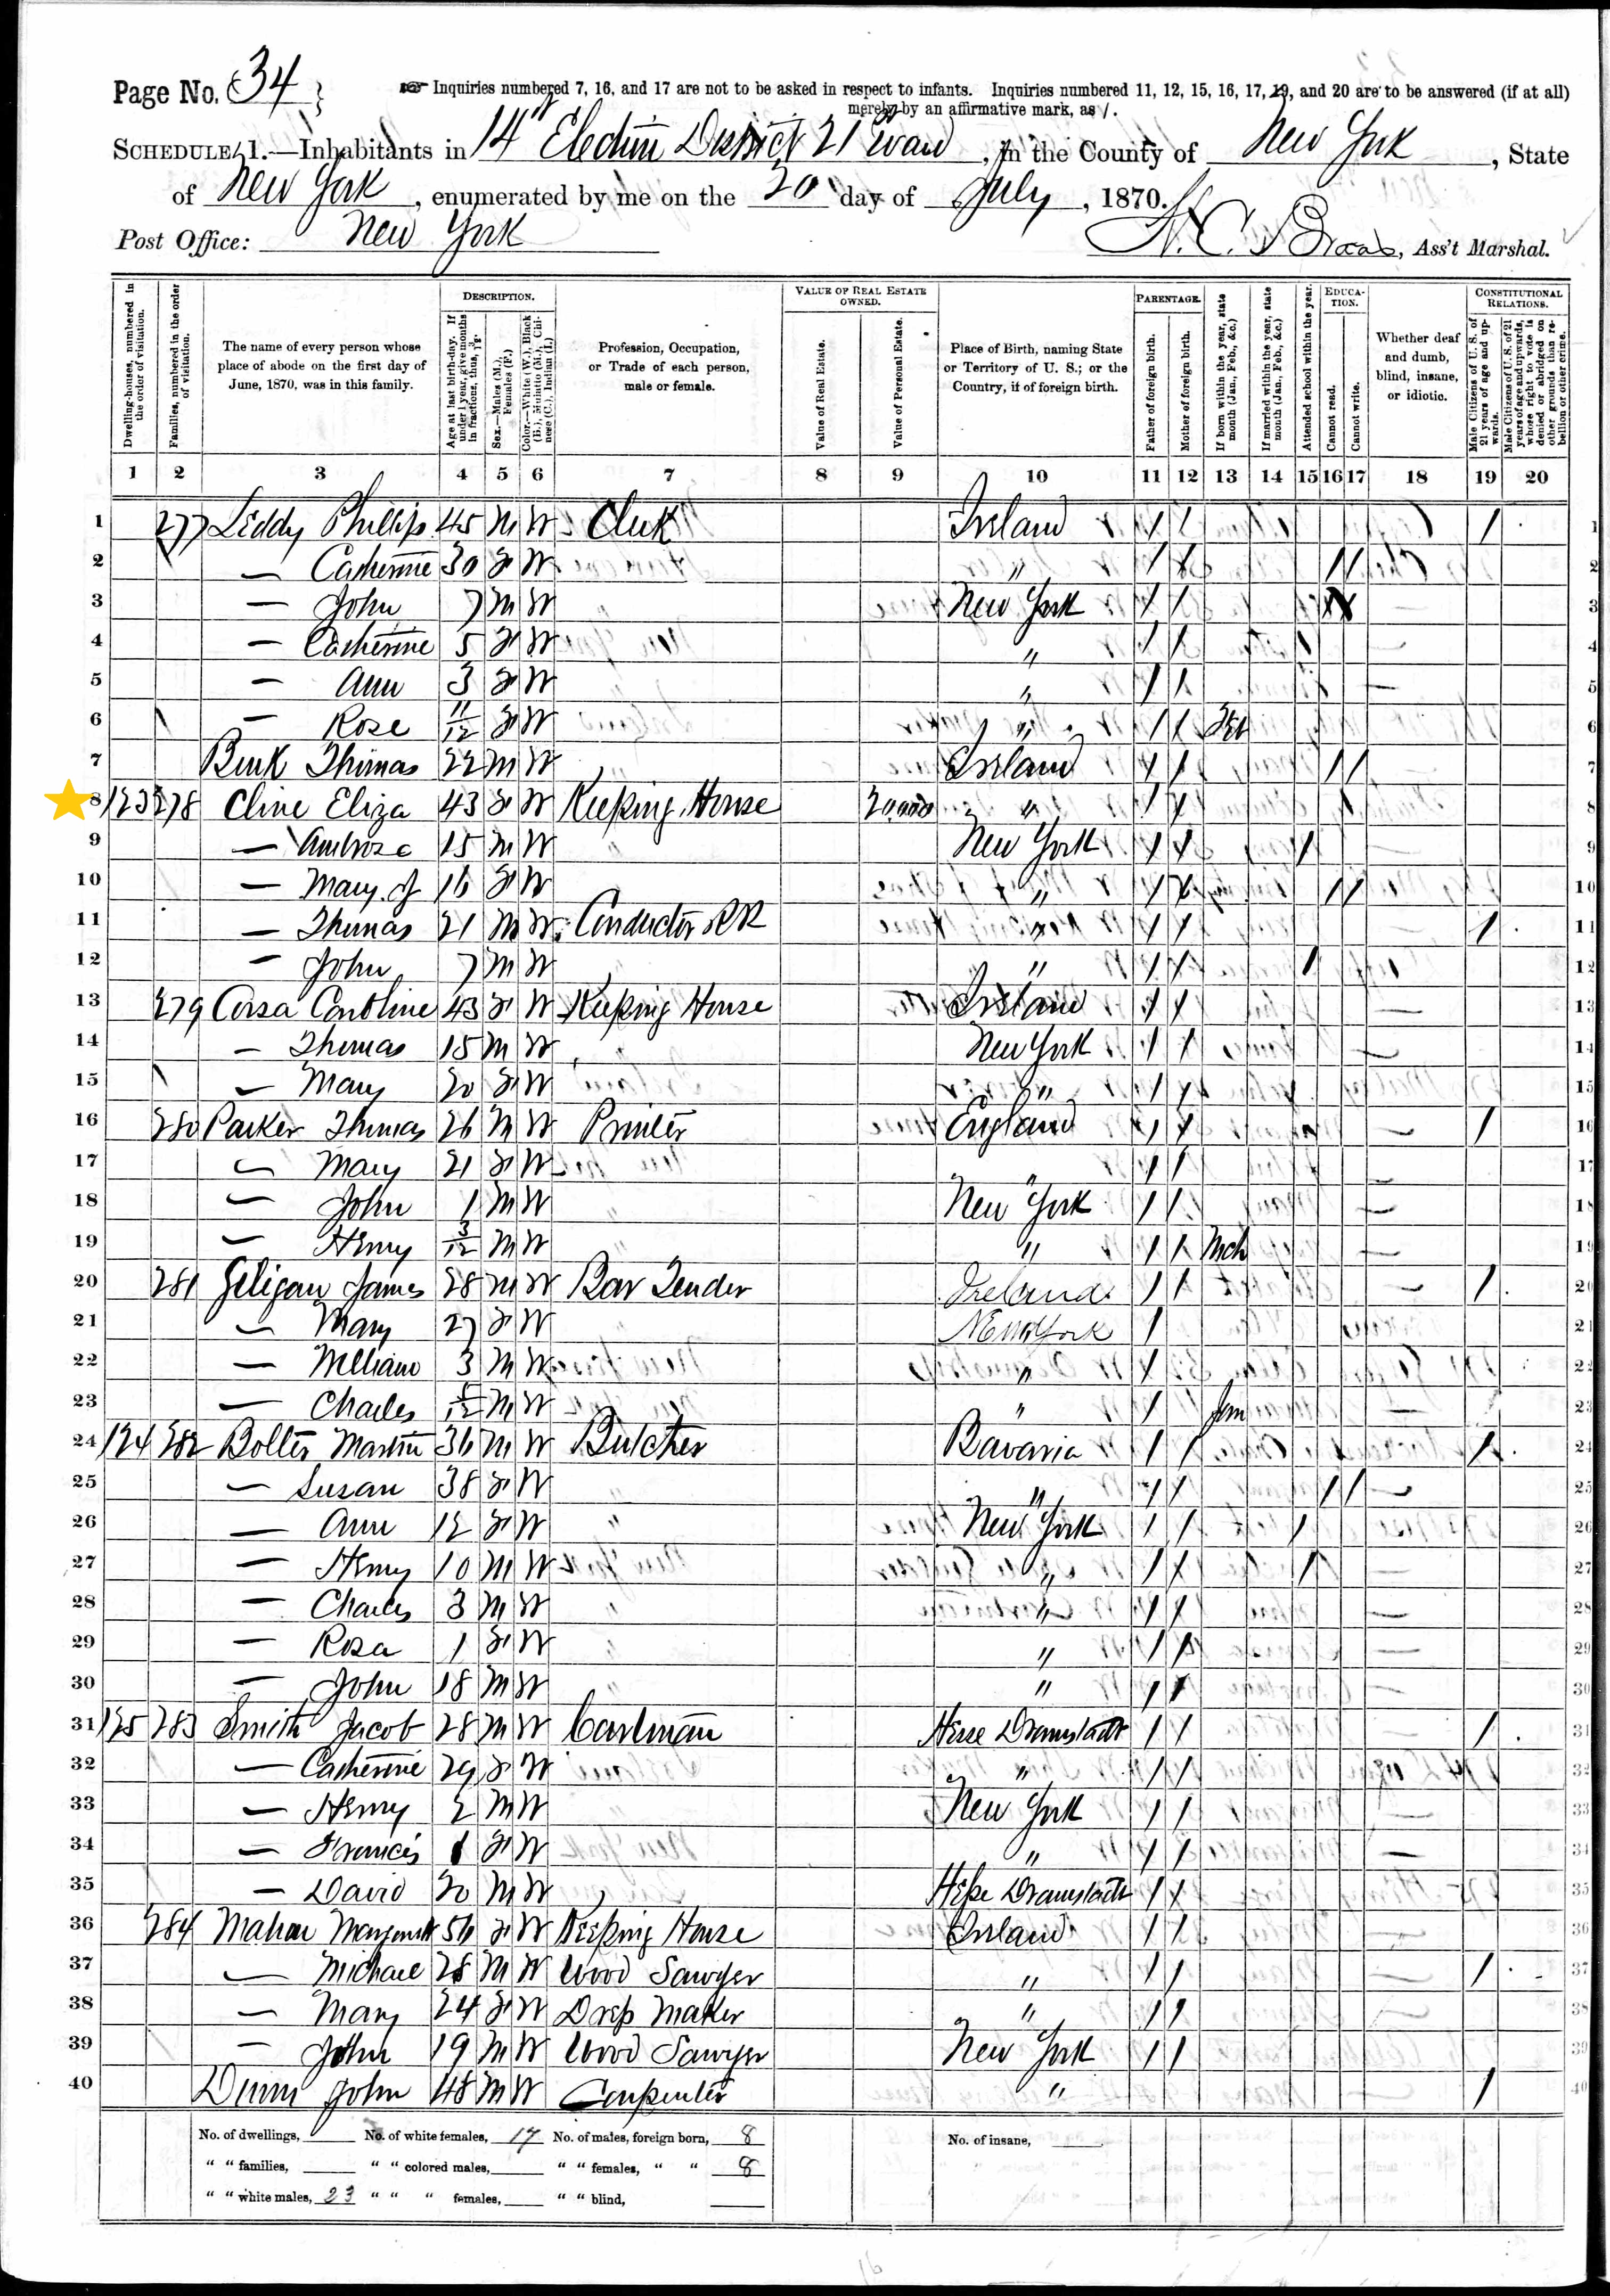 Page No. 34
Inquiries numbered 7, 16, and 17 are not to be asked in respect to infants. Inquiries numbered 11, 12, 15, 16, 17, 19, and 20 are to be answered (if at all)
merely by an affirmative mark, as /.
SCHEDULE 1.—Inhabitants in 14" Election District 21 Ward, in the County of New York, State
of New York, enumerated by me on the 20 day of July, 1870.
Post Office: New York
Ass't Marshal.
DESCRIPTION.
VALUE OF REAL ESTATE OWNED.
PARENTAGE.
EDUCATION.
CONSTITUTIONAL RELATIONS.
Dwelling-houses, numbered in the order of visitation.
Families, numbered in the order of visitation.
The name of every person whose place of abode on the first day of June, 1870, was in this family.
Age at last birth-day. If under 1 year, give months in fractions, thus, 3/12.
Sex.—Males (M.), Females (F.)
Color.—White (W.), Black (B.), Mulatto (M.), Chinese (C.), Indian (I.)
Profession, Occupation, or Trade of each person, male or female.
Value of Real Estate.
Value of Personal Estate.
Place of Birth, naming State or Territory of U. S.; or the Country, if of foreign birth.
Father of foreign birth.
Mother of foreign birth.
If born within the year, state month (Jan., Feb., &c.)
If married within the year, state month (Jan., Feb., &c.)
Attended school within the year.
Cannot read.
Cannot write.
Whether deaf and dumb, blind, insane, or idiotic.
Male Citizens of U. S. of 21 years of age and upwards.
Male Citizens of U. S. of 21 years of age and upwards, whose right to vote is denied or abridged on other grounds than rebellion or other crime.
1 2 3 4 5 6 7 8 9 10 11 12 13 14 15 16 17 18 19 20
1 277 Leddy Phillip 45 M W Clerk Ireland / / / 1
2 — Catherine 30 F W " / / / / 2
3 — John 7 M W New York / / 3
4 — Catherine 5 F W " / / / 4
5 — Ann 3 F W " / / 5
6 — Rose 11/12 F W " / / 6
7 Thomas 22 M W Ireland / / / / 7
8 123 278 Cline Eliza 43 F W Keeping House 20,000 " / / 8
9 — Ambrose 15 M W New York / / / 9
10 — Mary J 16 F W " / / / / 10
11 — Thomas 21 M W Conductor RR " / / / 11
12 — John 7 M W " / / / 12
13 279 Corsa Caroline 43 F W Keeping House Ireland / / 13
14 — Thomas 15 M W New York / / 14
15 — Mary 20 F W " / / 15
16 280 Parker Thomas 26 M W Printer England / / / 16
17 — Mary 21 F W " / / 17
18 — John 1 M W New York / / 18
19 — Henry 3/12 M W " / / Mch 19
20 281 Geligan James 28 M W Bar Tender Ireland / / / 20
21 — Mary 27 F W New York / 21
22 — William 3 M W " / 22
23 — Charles M W " / 23
24 124 282 Bolter Martin 36 M W Butcher Bavaria / / / 24
25 — Susan 38 F W " / / / / 25
26 — Ann 12 F W New York / / / 26
27 — Henry 10 M W " / / / 27
28 — Charles 3 M W " / / 28
29 — Rosa 1 F W " / / 29
30 — John 18 M W " / / 30
31 125 283 Smith Jacob 28 M W Cartman Hesse Dramstadt / / / 31
32 — Catherine 29 F W " / / 32
33 — Henry 2 M W New York / / 33
34 — Francis 1 F W " / / 34
35 — David 20 M W Hesse Dramstadt / / 35
36 284 Mahan Margarett 56 F W Keeping House Ireland / / 36
37 — Michael 28 M W Wood Sawyer " / / / 37
38 — Mary 24 F W Dress Maker " / / 38
39 — John 19 M W Wood Sawyer New York / / 39
40 Dunn John 48 M W Carpenter " / 40
No. of dwellings, No. of white females, 17 No. of males, foreign born, 8 No. of insane,
" " families, " " colored males, " " females, " " 8
" " white males, 23 " " " females, " " blind,